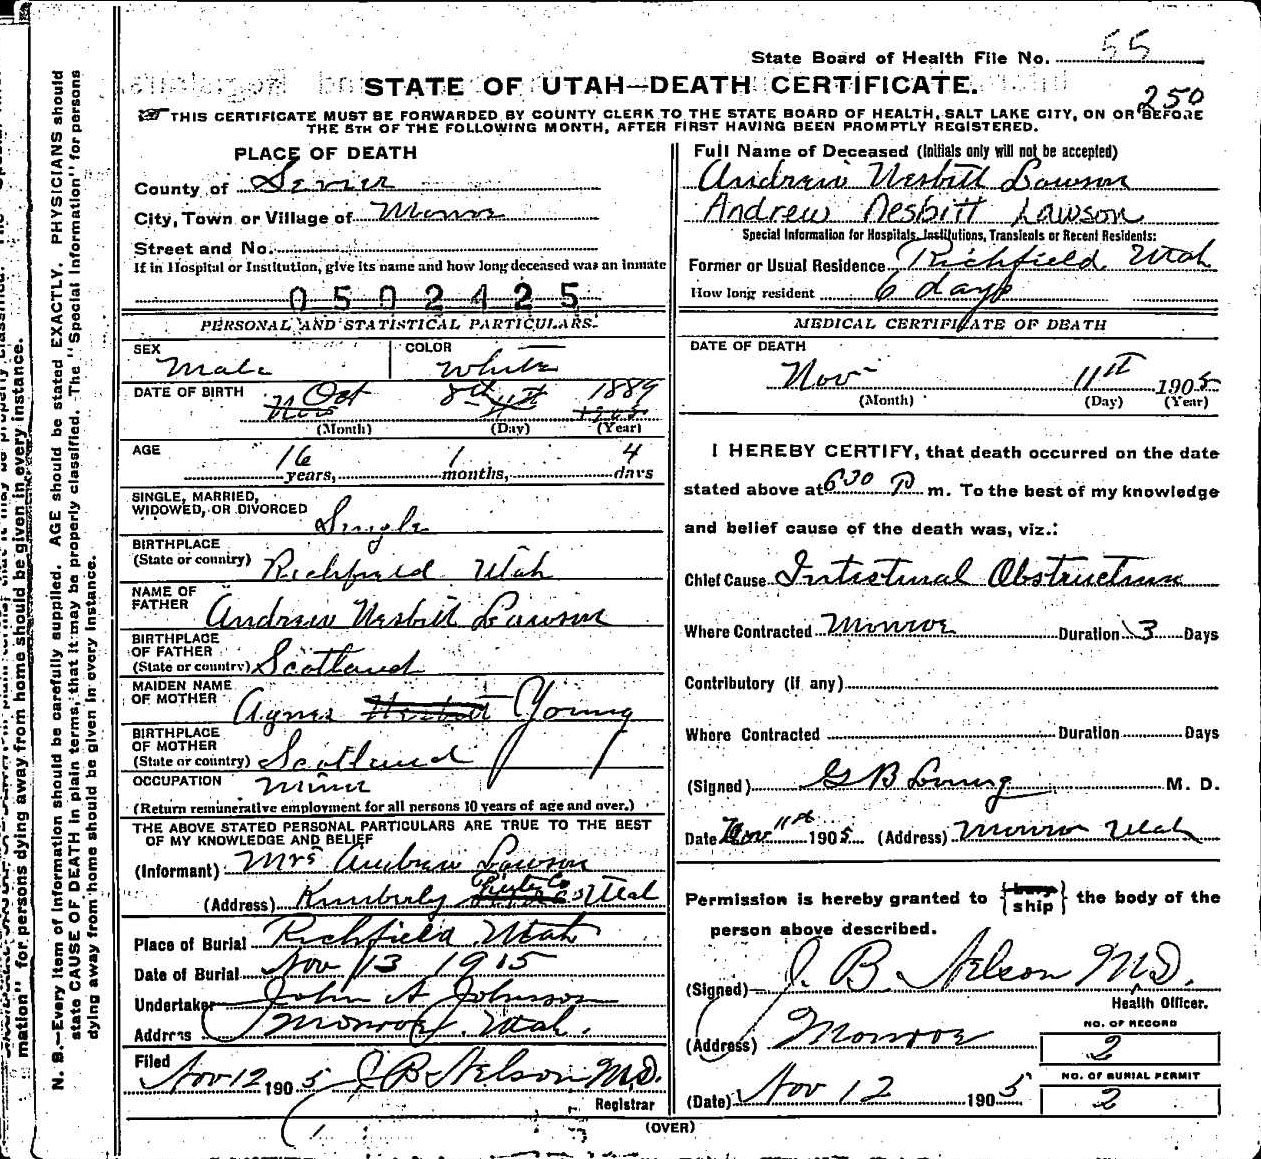 State Board of Health File No. 55
STATE OF UTAH—DEATH CERTIFICATE.
250
THIS CERTIFICATE MUST BE FORWARDED BY COUNTY CLERK TO THE STATE BOARD OF HEALTH, SALT LAKE CITY, ON OR BEFORE
THE 5TH OF THE FOLLOWING MONTH, AFTER FIRST HAVING BEEN PROMPTLY REGISTERED.
PLACE OF DEATH
County of Sevier
City, Town or Village of Monroe
Street and No.
If in Hospital or Institution, give its name and how long deceased was an inmate
0502425
PERSONAL AND STATISTICAL PARTICULARS.
SEX Male
COLOR White
DATE OF BIRTH Oct 8th 1889
Nov 11th 1905
(Month) (Day) (Year)
AGE 16 years, 1 months, 4 days
SINGLE, MARRIED,
WIDOWED, OR DIVORCED Single
BIRTHPLACE
(State or country) Richfield Utah
NAME OF
FATHER Andrew Nesbitt Lawson
BIRTHPLACE
OF FATHER
(State or country) Scotland
MAIDEN NAME
OF MOTHER Agnes Nesbitt Young
BIRTHPLACE
OF MOTHER
(State or country) Scotland
OCCUPATION Miner
(Return remunerative employment for all persons 10 years of age and over.)
THE ABOVE STATED PERSONAL PARTICULARS ARE TRUE TO THE BEST
OF MY KNOWLEDGE AND BELIEF
(Informant) Mrs Andrew Lawson
(Address) Kimberly Piute Co Utah
Place of Burial Richfield Utah
Date of Burial Nov 13 1905
Undertaker John A Johnson
Address Monroe, Utah.
Filed Nov 12 1905 J B Nelson M.D.
Registrar
Full Name of Deceased (Initials only will not be accepted)
Andrew Nesbitt Lawson
Andrew Nesbitt Lawson
Special Information for Hospitals, Institutions, Transients or Recent Residents:
Former or Usual Residence Richfield Utah
How long resident 6 days
MEDICAL CERTIFICATE OF DEATH
DATE OF DEATH
Nov 11th 1905
(Month) (Day) (Year)
I HEREBY CERTIFY, that death occurred on the date
stated above at 6 30 P m. To the best of my knowledge
and belief cause of the death was, viz.:
Chief Cause Intestural Obstruction
Where Contracted Monroe Duration 3 Days
Contributory (if any)
Where Contracted Duration Days
(Signed) G B M. D.
Date Nov 11th 1905 (Address) Monroe Utah
Permission is hereby granted to {bury ship} the body of the
person above described.
(Signed) J. B. Nelson M.D.
Health Officer.
(Address) Monroe
NO. OF RECORD
2
(Date) Nov 12 1905
NO. OF BURIAL PERMIT
2
(OVER)
N. B.—Every item of information should be carefully supplied. AGE should be stated EXACTLY. PHYSICIANS should
state CAUSE OF DEATH in plain terms, that it may be properly classified. The "Special Information" for persons
dying away from home should be given in every instance.
mation" for persons dying away from home should be given in every instance.